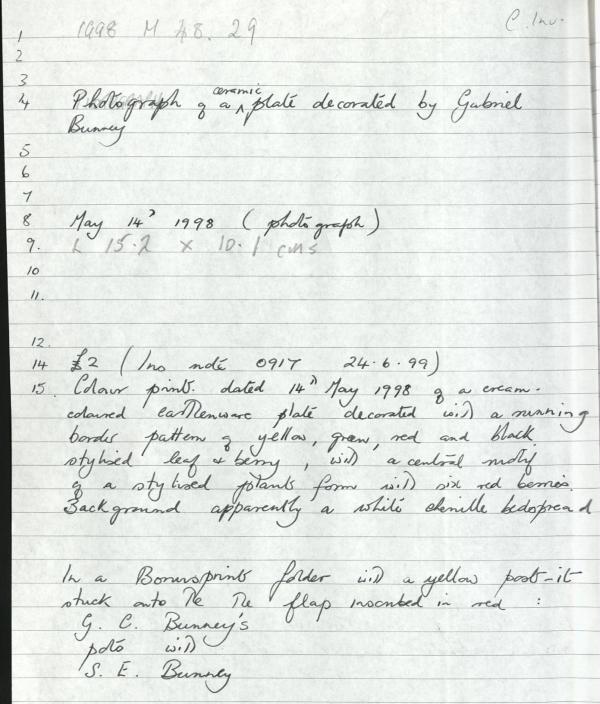 C. Inv.
1 1998 M 48. 29
2
3
4 Photograph of a ceramic plate decorated by Gabriel
Bunney
5
6
7
8 May 14th 1998 (photograph)
9. L 15.2 x 10.1 cms
10
11.
12.
14 £2 (Ins note 0917 24.6.99)
15. Colour print dated 14th May 1998 of a cream-
coloured earthenware plate decorated with a running
border pattern of yellow, green, red and black
stylised leaf & berry, with a central motif
of a stylised plants form with six red berries.
Background apparently a white chenille bedspread
In a Bonusprint folder with a yellow post-it
stuck onto the the flap inscribed in red :
G. C. Bunney's
poto with
S. E. Bunney